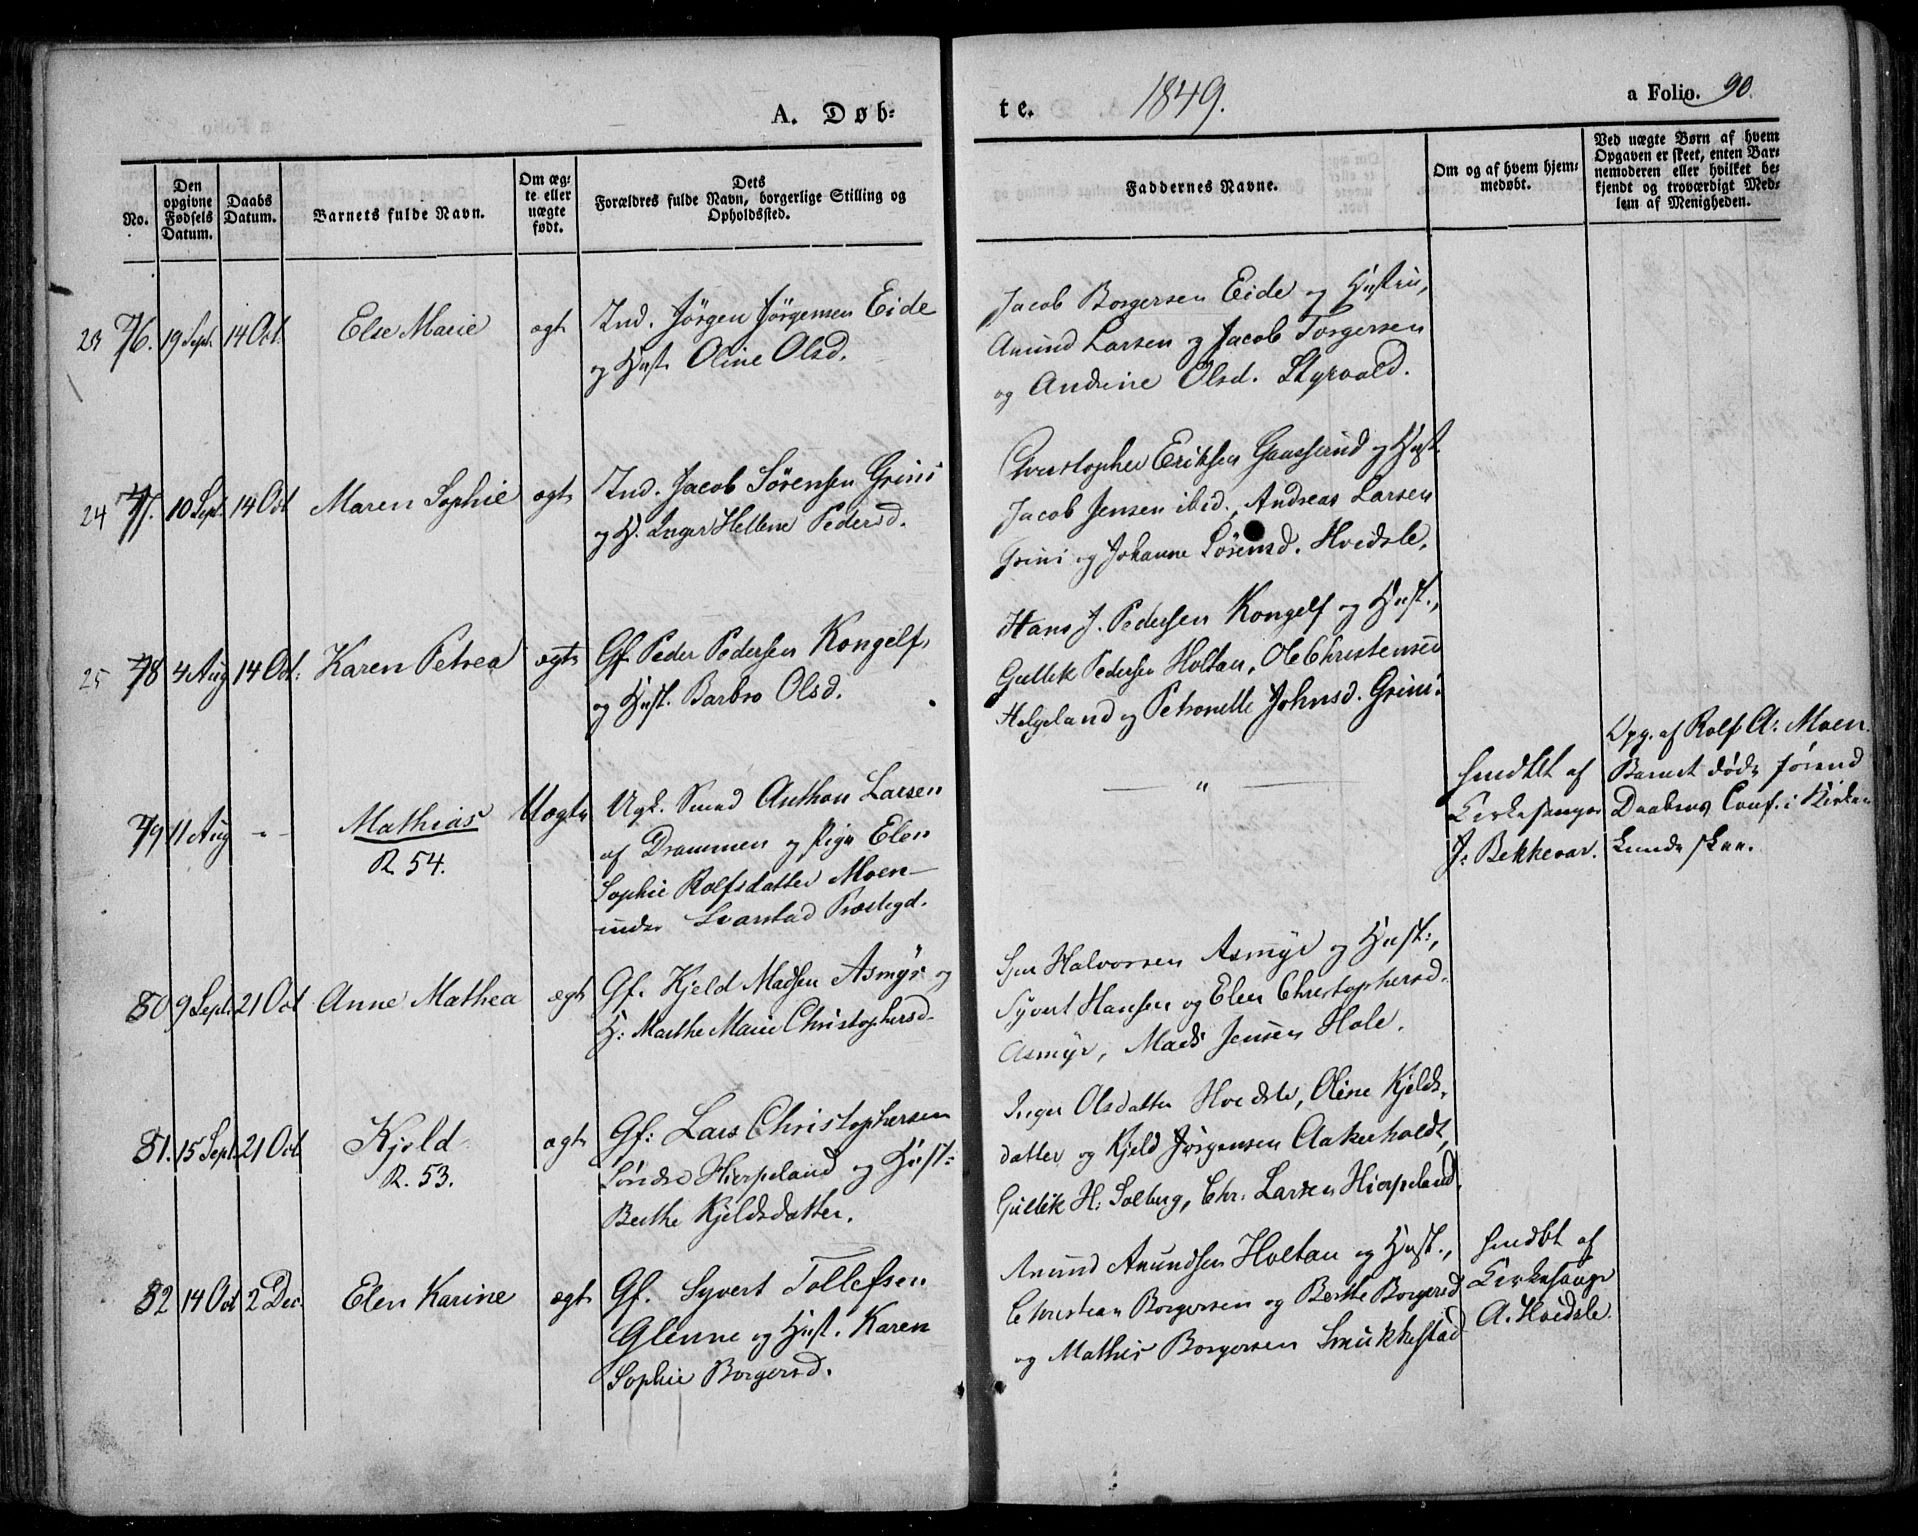 A. Døb-
te.
1849.
a Folio. 90.
No.
Den
opgivne
Fødsels
Datum.
Daabs
Datum.
Barnets fulde Navn.
Om æg-
te eller
uægte
født.
Dets
Forældres fulde Navn, borgerlige Stilling og
Opholdssted.
Faddernes Navne.
Om og af hvem hjem-
medøbt.
Ved uægte Børn af hvem
Opgaven er skeet, enten Bar-
nemoderen eller hvilket be-
kjendt og troværdigt Med-
lem af Menigheden.
23 76. 19 Sept. 14 Oct. Else Marie ægt
Ind. Jörgen Jörgensen Eide
og Hust. Oline Olsd.
Jacob Borgersen Eide og Hustru,
Anund Larsen og Jacob Torgersen
og Andrine Olsd. Styrvold.
24 77. 10 Sept. 14 Oct Maren Sophie ægt
Ind. Jacob Sörensen Grini
og H. Inger Hellene Pedersd.
Christopher Eriksen Gaasserud og Hust.
Jacob Jensen ibid., Andreas Larsen
Grini og Johanne Sörensd. Hvidsle.
25 78 4 Aug 14 Oct. Karen Petrea ægt
Gf. Peder Pedersen Kongelf
og Hust. Barbro Olsd.
Hans J. Pedersen Kongelf og Hust.,
Gullik Pedersen Holtan, Ole Christensen
Helgeland og Petronelle Johnsd. Grini.
79 11 Aug - - Mathias Uægte
R 54.
Ugk. Smed Anthon Larsen
af Drammen og Pige Elen
Sophie Rolfsdatter Moen
under Svarstad Præstegd.
— " —
hmdbt af
Kirkesanger
J. Bekkevar.
Opg. af Rolf A. Moen.
Barnet døde førend
Daabens Conf. i Kirken
kunde skee.
80 9 Sept. 21 Oct Anne Mathea ægt
Gf. Kjeld Madsen Asmyr og
H: Marthe Marie Christophersd.
Halvorsen Asmyr og Hust:,
Syvert Hansen og Elen Christophersd.
Asmyr, Mads Jensen Hole.
81. 15 Sept. 21 Oct Kjeld ægt
R. 53.
Gf: Lars Christophersen
Søndre Hierpeland og Hust:
Berthe Kjeldsdatter.
Inger Olsdatter Hvidsle, Oline Kjelds-
datter og Kjeld Jörgensen Aakerholdt,
Gullik H: Solberg, Chr. Larsen Hierpeland.
82 14 Oct 2 Dec. Elen Karine ægt
Gf. Syvert Tollefsen
Glenne og Hust. Karen
Sophie Borgersd.
Anund Anundsen Holtan og Hust.,
Christian Borgersen og Berthe Borgersd
og Mathis Borgersen Smukkestad
hmdbt af
Kirkesanger
A. Hvidsle.